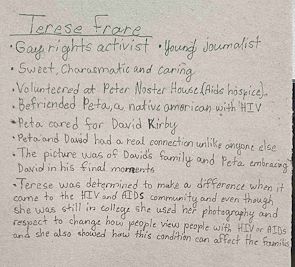 Terese Frare
• Gay rights activist • Young journalist
• Sweet, Charasmatic and caring
• Volunteered at Peter Noster House (Aids hospice).
• Befriended Peta, a native american with HIV
• Peta cared for David Kirby
• Peta and David had a real connection unlike anyone else
• The picture was of David's family and Peta embracing
David in his final moments
• Terese was determined to make a difference when it
came to the HIV and AIDS community and even though
she was still in college she used her photography and
respect to change how people view people with HIV or AIDS
and she also showed how this condition can affect the families